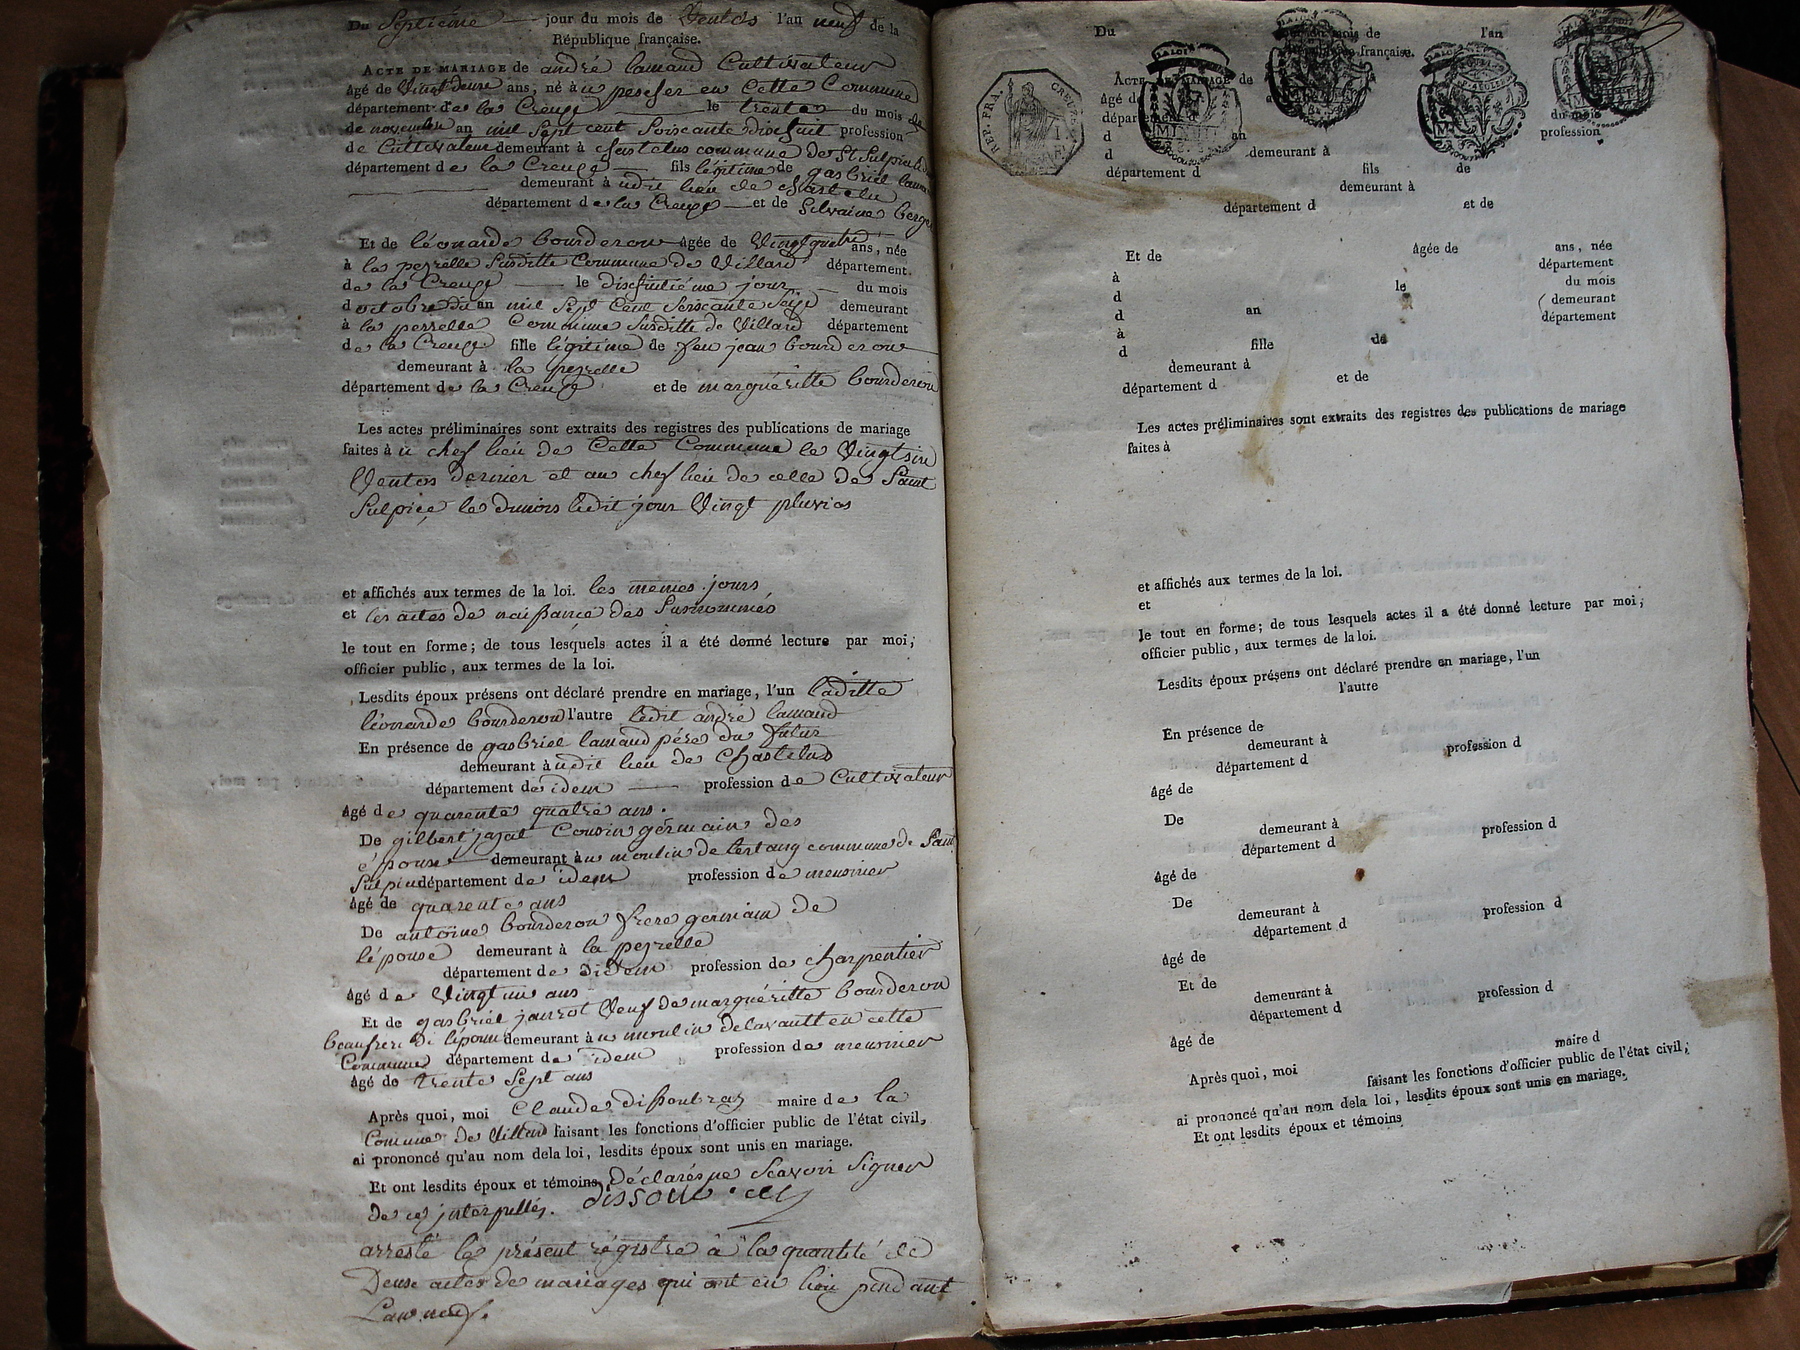 Du Septiéme jour du mois de Ventos l'an neuf de la
République française.
ACTE DE MARIAGE de andré lamaud Cultivateur
âgé de Vingt deux ans, né au en Cette Commune
département de la Creuze le trente du mois de
de novembre an mil Sept cent Soiscante Dixhuit profession
de Cultivateur demeurant à Chastelus commune de St Sulpice
département de la Creuze fils légitime de gasbriel lamaud
demeurant à udit lieu de Chastelus
département de la Creuze et de Silvaine berger
Et de léonarde bourderou âgée de Vingtquatre ans, née
à la peyrelle Susditte Commune de Villard département
de la Creuze le dishuitiéme jour du mois
doctobre du an mil Sept Cent Soiscante Seize demeurant
à la perrelle Commune Susditte de Villard département
de la Creuze fille légitime de feu jean bourderou
demeurant à la peyrelle
département de la Creuze et de marguéritte bourderou
Les actes préliminaires sont extraits des registres des publications de mariage
faites à u chef lieu de Cette Commune le Vingt
Ventos dernier et au chef lieu de celle de Saint
Sulpice le dunois ledit jour Vingt pluvios
et affichés aux termes de la loi. les mêmes jours
et les actes de naissance des Surnommés
le tout en forme; de tous lesquels actes il a été donné lecture par moi,
officier public, aux termes de la loi.
Lesdits époux présens ont déclaré prendre en mariage, l'un laditte
léonarde bourderou l'autre ledit andré lamaud
En présence de gasbriel lamaud pére du futur
demeurant à udit lieu de Chastelus
département de idem profession de Cultivateur
âgé de quarente quatre ans.
De gilbert Cousin germain des
épouse demeurant à u moulin de lestang commune de Saint
Sulpice département de idem profession de meusnier
âgé de quarente ans
De antoine bourderou frere germain de
lépouse demeurant à la peyrelle
département de idem profession de charpentier
âgé de Vingt un ans
Et de gasbriel janrot Veuf de marguéritte bourderou
beaufrere de lépouse demeurant à u moulin delavault en cette
Commune département de idem profession de meusnier
âgé de trente Sept ans
Après quoi, moi Claude maire de la
Comune de Villard faisant les fonctions d'officier public de l'état civil,
ai prononcé qu'au nom dela loi, lesdits époux sont unis en mariage.
Et ont lesdits époux et témoins déclarés ne Scavoir Signer
de ce interpellés.
arresté le présent régistre à la quantité de
Deuse actes de mariages qui ont eu lieu pendant
Lan neuf.
Du mois de l'an
française.
ACTE DE MARIAGE de
REP. FRA. CREUZE
LA LOI
âgé d
département d
du mois
d an profession
d demeurant à
département d fils de
demeurant à
département d et de
Et de âgée de ans, née
à département
d le du mois
d an demeurant
à département
d fille de
demeurant à
département d et de
Les actes préliminaires sont extraits des registres des publications de mariage
faites à
et affichés aux termes de la loi.
et
le tout en forme; de tous lesquels actes il a été donné lecture par moi,
officier public, aux termes de la loi.
Lesdits époux présens ont déclaré prendre en mariage, l'un
l'autre
En présence de
demeurant à profession d
département d
âgé de
De
demeurant à profession d
département d
âgé de
De
demeurant à profession d
département d
âgé de
Et de
demeurant à profession d
département d
âgé de
Après quoi, moi maire d
faisant les fonctions d'officier public de l'état civil,
ai prononcé qu'au nom dela loi, lesdits époux sont unis en mariage.
Et ont lesdits époux et témoins